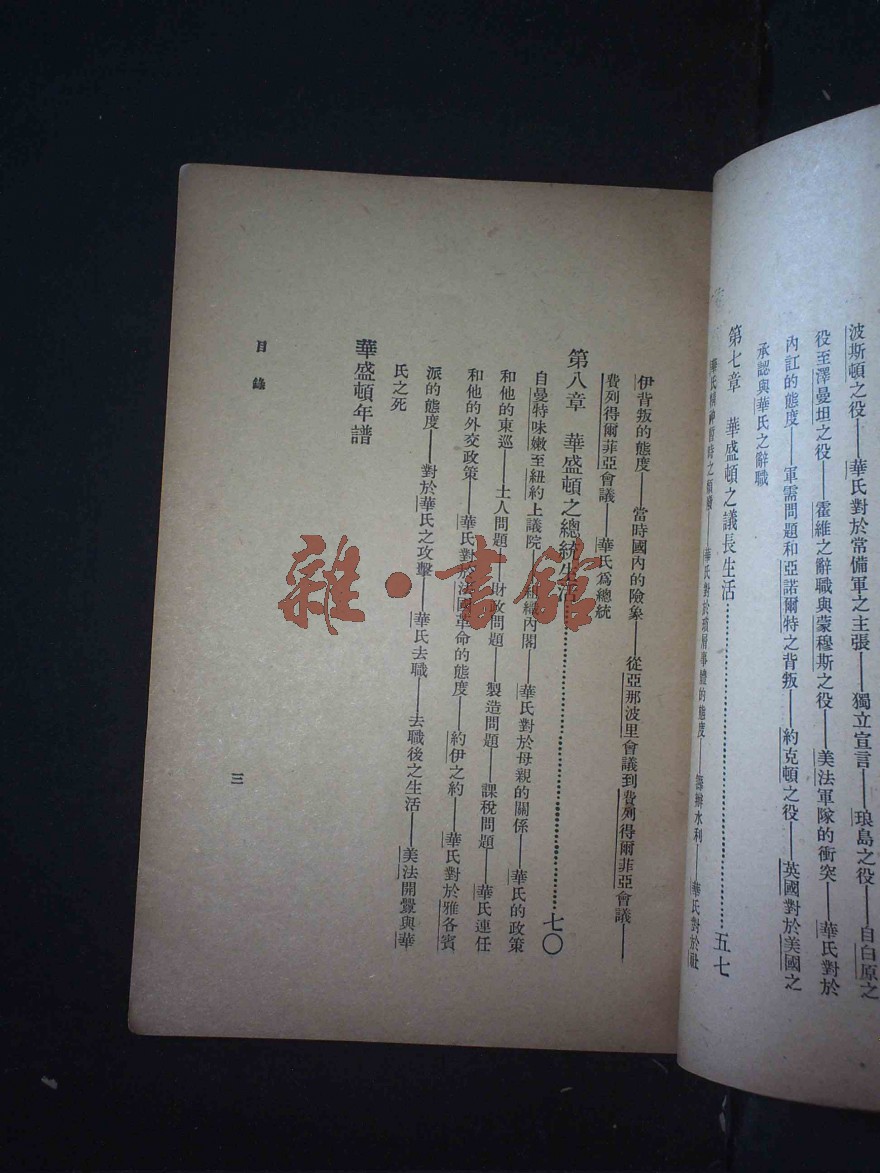 波斯頓之役——華氏對於常備軍之主張——獨立宣言——琅島之役——自白原之
役至澤曼坦之役——霍維之辭職與蒙穆斯之役——美法軍隊的衝突——華氏對於
內訌的態度——軍需問題和亞諾爾特之背叛——約克頓之役——英國對於美國之
承認與華氏之辭職
第七章 華盛頓之議長生活……五七
華氏對於瑣屑事體的態度——籌辦水利——華氏對於社
伊背叛的態度——當時國內的險象——從亞那波里會議到費列得爾菲亞會議——
費列得爾菲亞會議——華氏爲總統
第八章 華盛頓之總統生活……七〇
自曼特味嫩至紐約上議院——組織內閣——華氏對於母親的關係——華氏的政策
和他的東巡——土人問題——財政問題——製造問題——課稅問題——華氏連任
和他的外交政策——華氏對於法國革命的態度——約伊之約——華氏對於雅各賓
派的態度——對於華氏之攻擊——華氏去職——去職後之生活——美法開釁與華
氏之死
華盛頓年譜
目錄
三
雜·書館